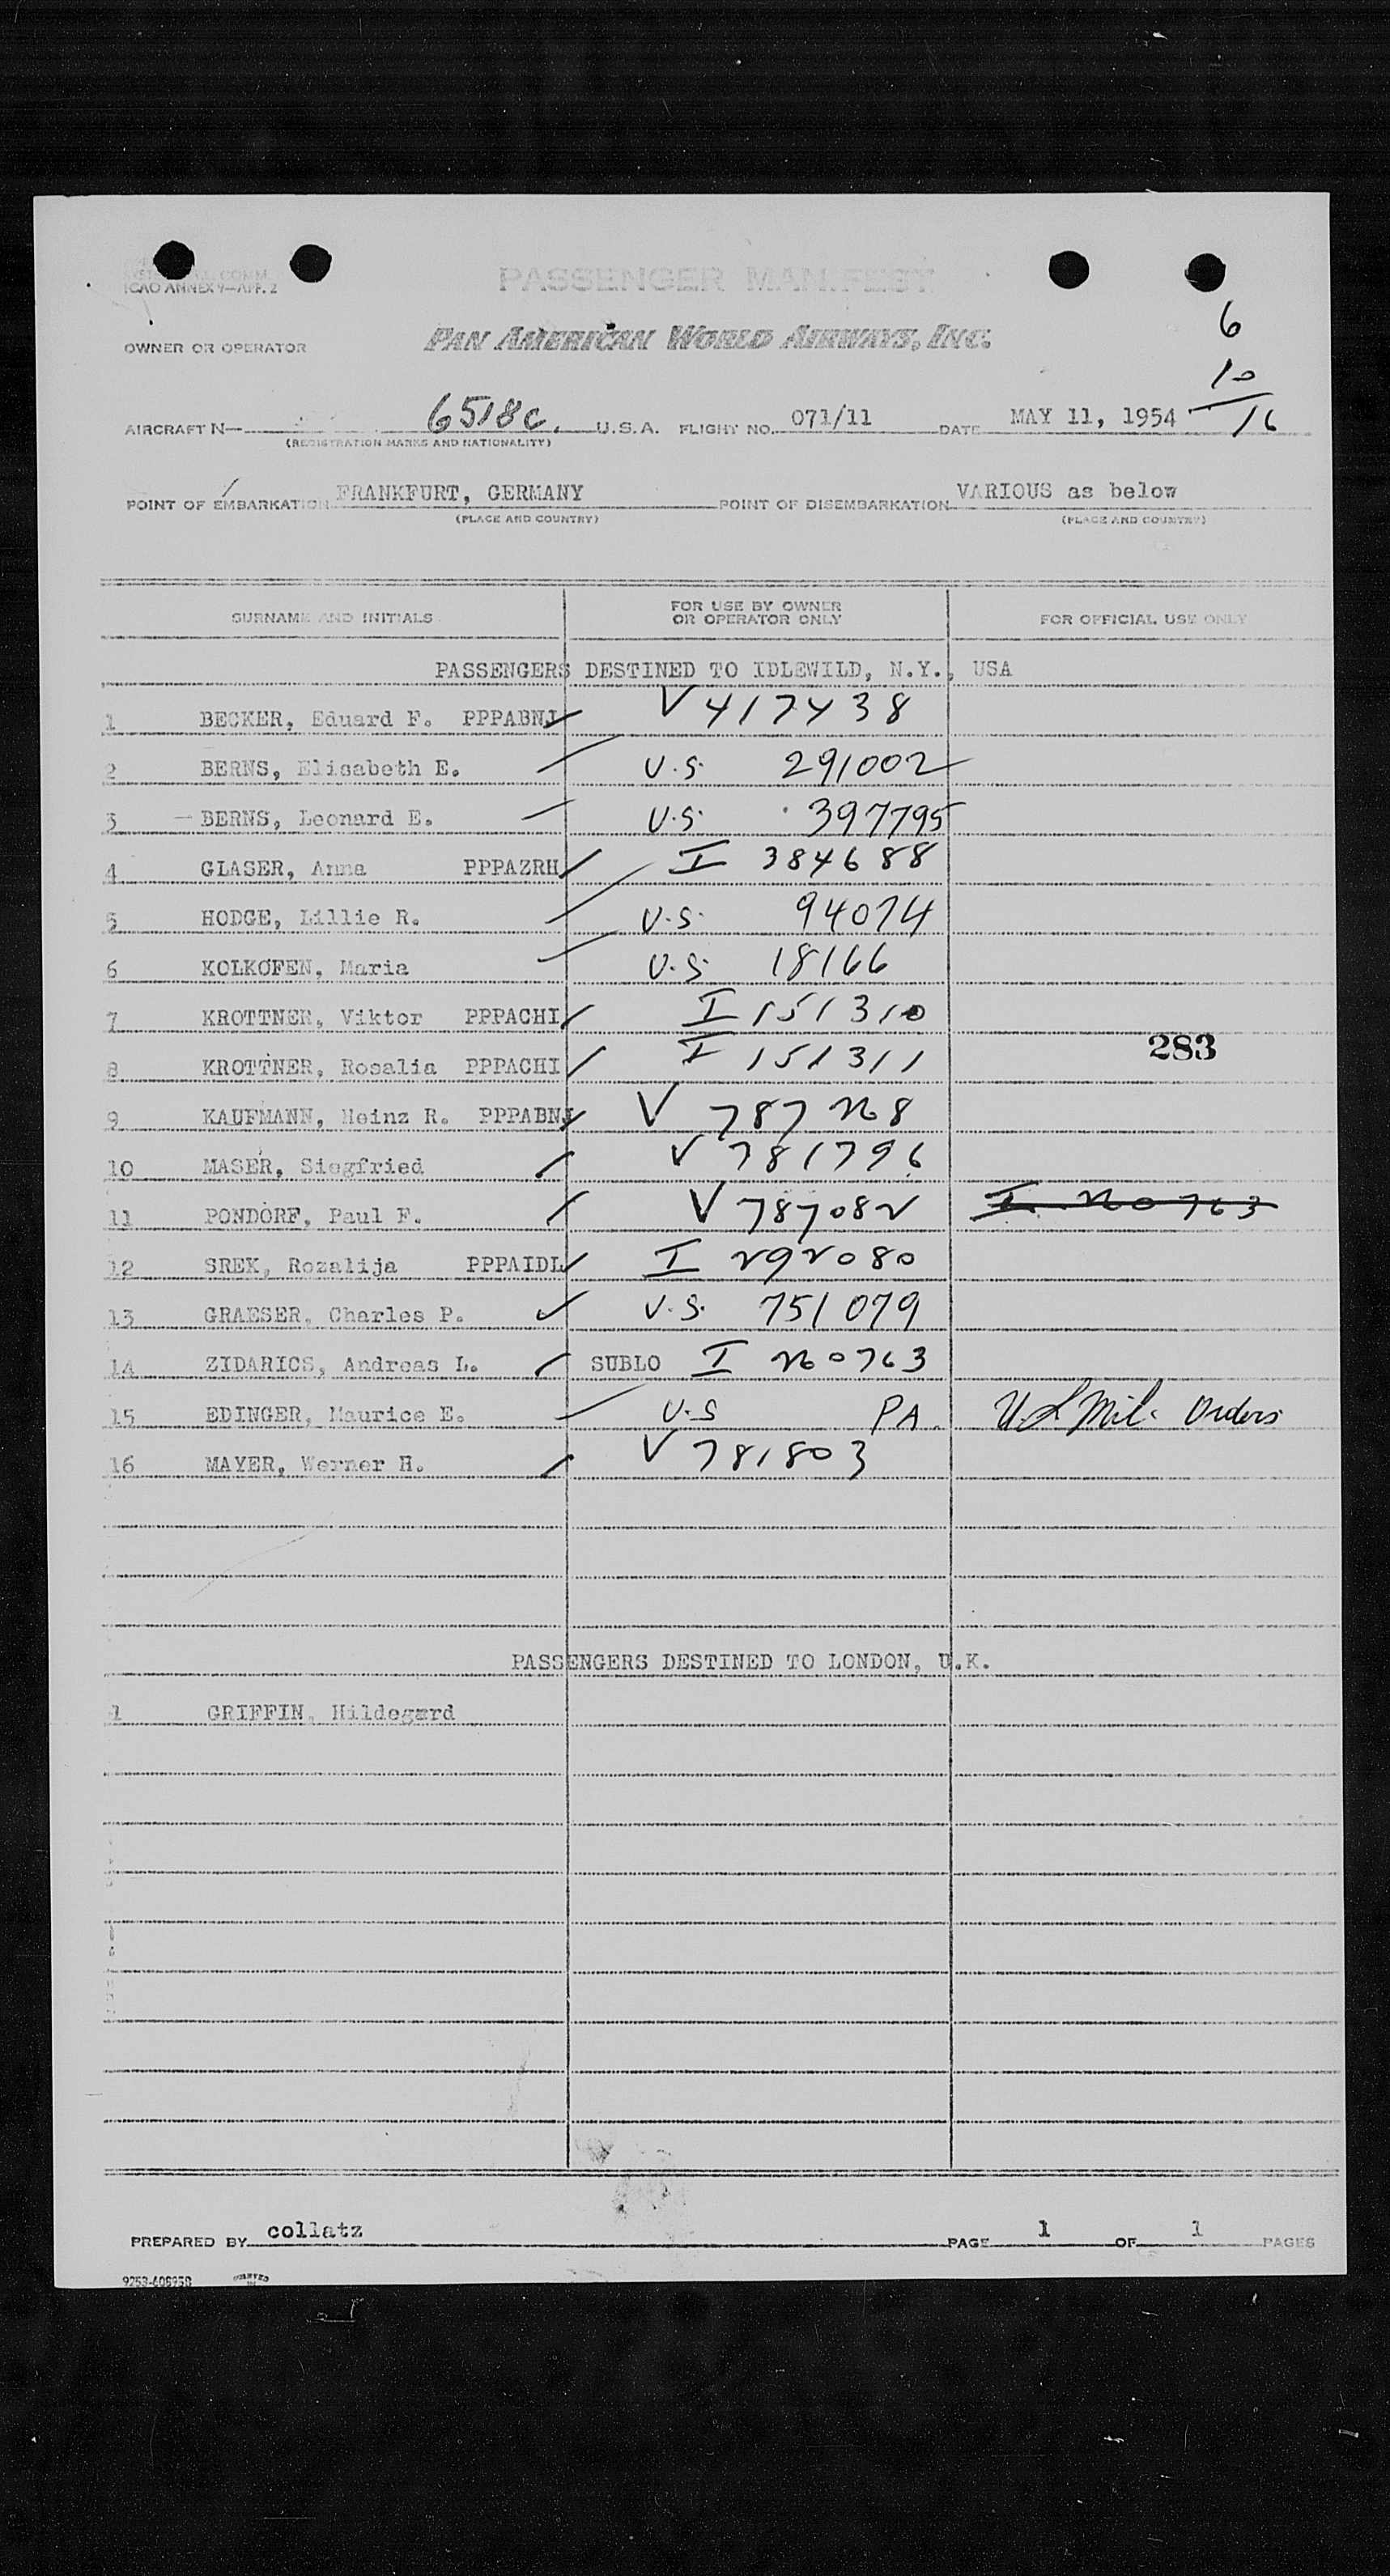 INT'L COMM.
ICAO ANNEX 9—APP. 2
PASSENGER MANIFEST
6
OWNER OR OPERATOR PAN AMERICAN WORLD AIRWAYS, INC.
10
AIRCRAFT N— 6518C. U.S.A. FLIGHT NO. 071/11 DATE MAY 11, 1954 16
(REGISTRATION MARKS AND NATIONALITY)
POINT OF EMBARKATION FRANKFURT, GERMANY POINT OF DISEMBARKATION VARIOUS as below
(PLACE AND COUNTRY) (PLACE AND COUNTRY)
SURNAME AND INITIALS FOR USE BY OWNER OR OPERATOR ONLY FOR OFFICIAL USE ONLY
PASSENGERS DESTINED TO IDLEWILD, N.Y., USA
1 BECKER, Eduard F. PPPABNJ V 417438
2 BERNS, Elisabeth E. U.S. 291002
3 BERNS, Leonard E. U.S. 397795
4 GLASER, Anna PPPAZRH I 384688
5 HODGE, Lillie R. U.S. 94074
6 KOLKOFEN, Maria U.S. 18166
7 KROTTNER, Viktor PPPACHI I 151310
283
8 KROTTNER, Rosalia PPPACHI I 151311
9 KAUFMANN, Heinz R. PPPABNJ V
10 MASER, Siegfried V 781796
11 PONDORF, Paul F. V 787082
12 SREK, Rozalija PPPAIDL I 292080
13 GRAESER, Charles P. U.S. 751079
14 ZIDARICS, Andreas L. SUBLO I
15 EDINGER, Maurice E. U.S PA. U.S Mil. Orders
16 MAYER, Werner H. V 781803
PASSENGERS DESTINED TO LONDON, U.K.
1 GRIFFIN, Hildegard
PREPARED BY collatz PAGE 1 OF 1 PAGES